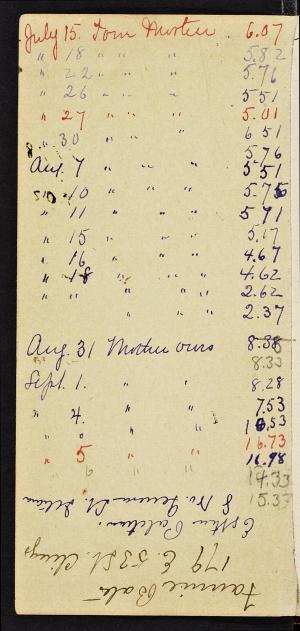 July 15. Tom Morten. 6.07
" 18 " " " 5.82
" 22 " " " 5.76
" 26 " " " 5.51
" 27 " " " 5.01
" 30 " " " 6.51
5.76
Aug. 7 " " " 5.51
" 10 " " " 5.75
" 11 " " " 5.71
" 15 " " " 5.17
" 16 " " " 4.67
" 18 " " " 4.62
" " " " 2.62
" " 2.37
Aug. 31 Mother owes 8.88
8.33
Sept. 1. " " 8.28
" " 7.53
" 4. " " 10.53
" " " " 16.73
" 5 " " 16.98
14.33
15.33
Esther
8 So.
179 E. 53 St.
Fannie